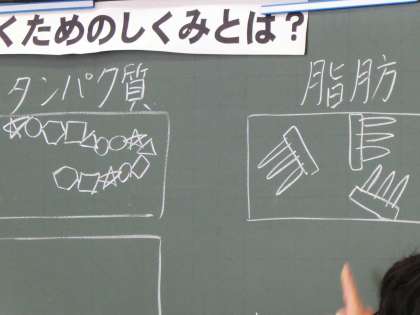 くためのしくみとは？
タンパク質
脂肪